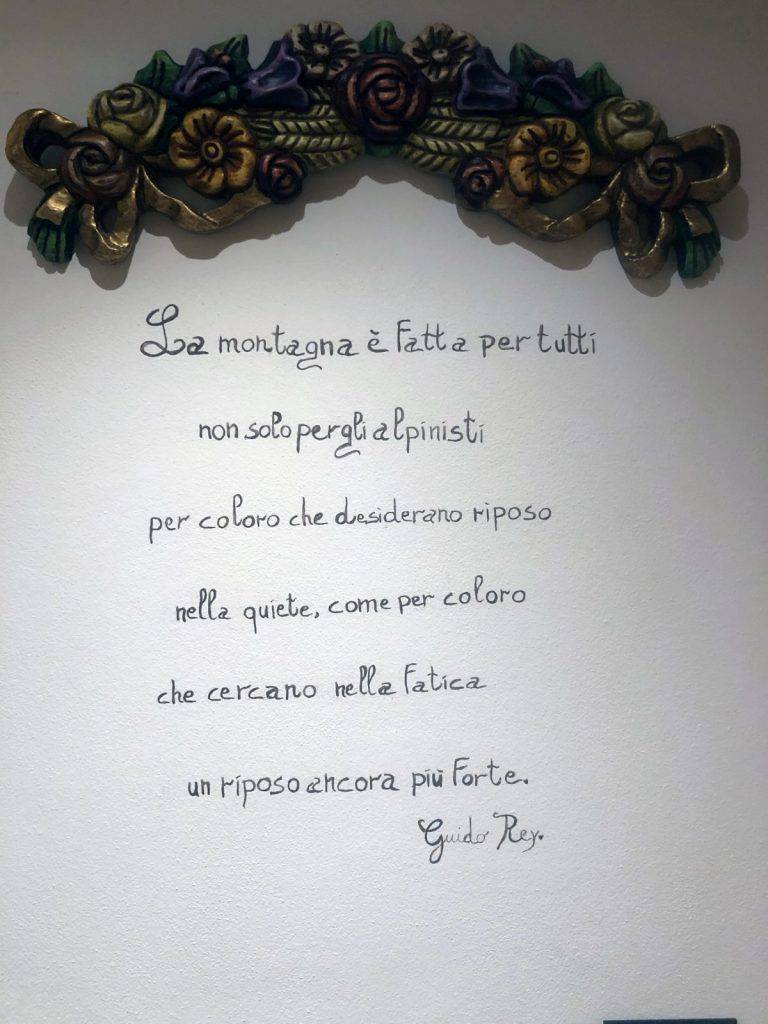 La montagna è fatta per tutti
non solo per gli alpinisti
per coloro che desiderano riposo
nella quiete, come per coloro
che cercano nella fatica
un riposo ancora più forte.
Guido Rey.